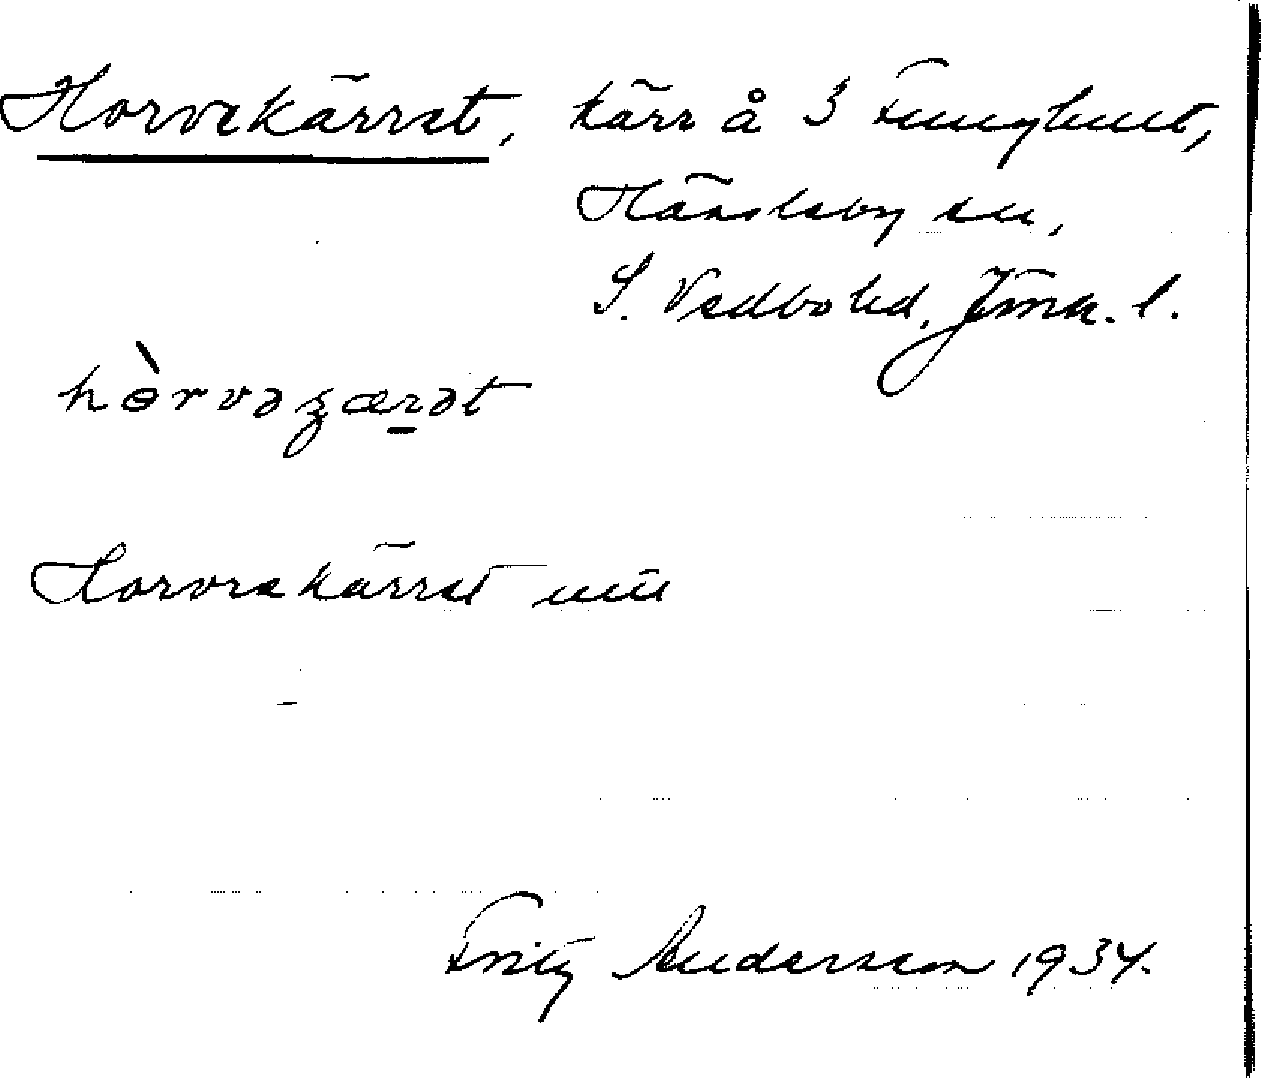 Horvekärret, kärr å 3 Funghult,
Hässleby sn,
S. Vedbo hd, Jönk. l.
hòrvəʒærət
Horvekärret
Fritz Andersson 1934.